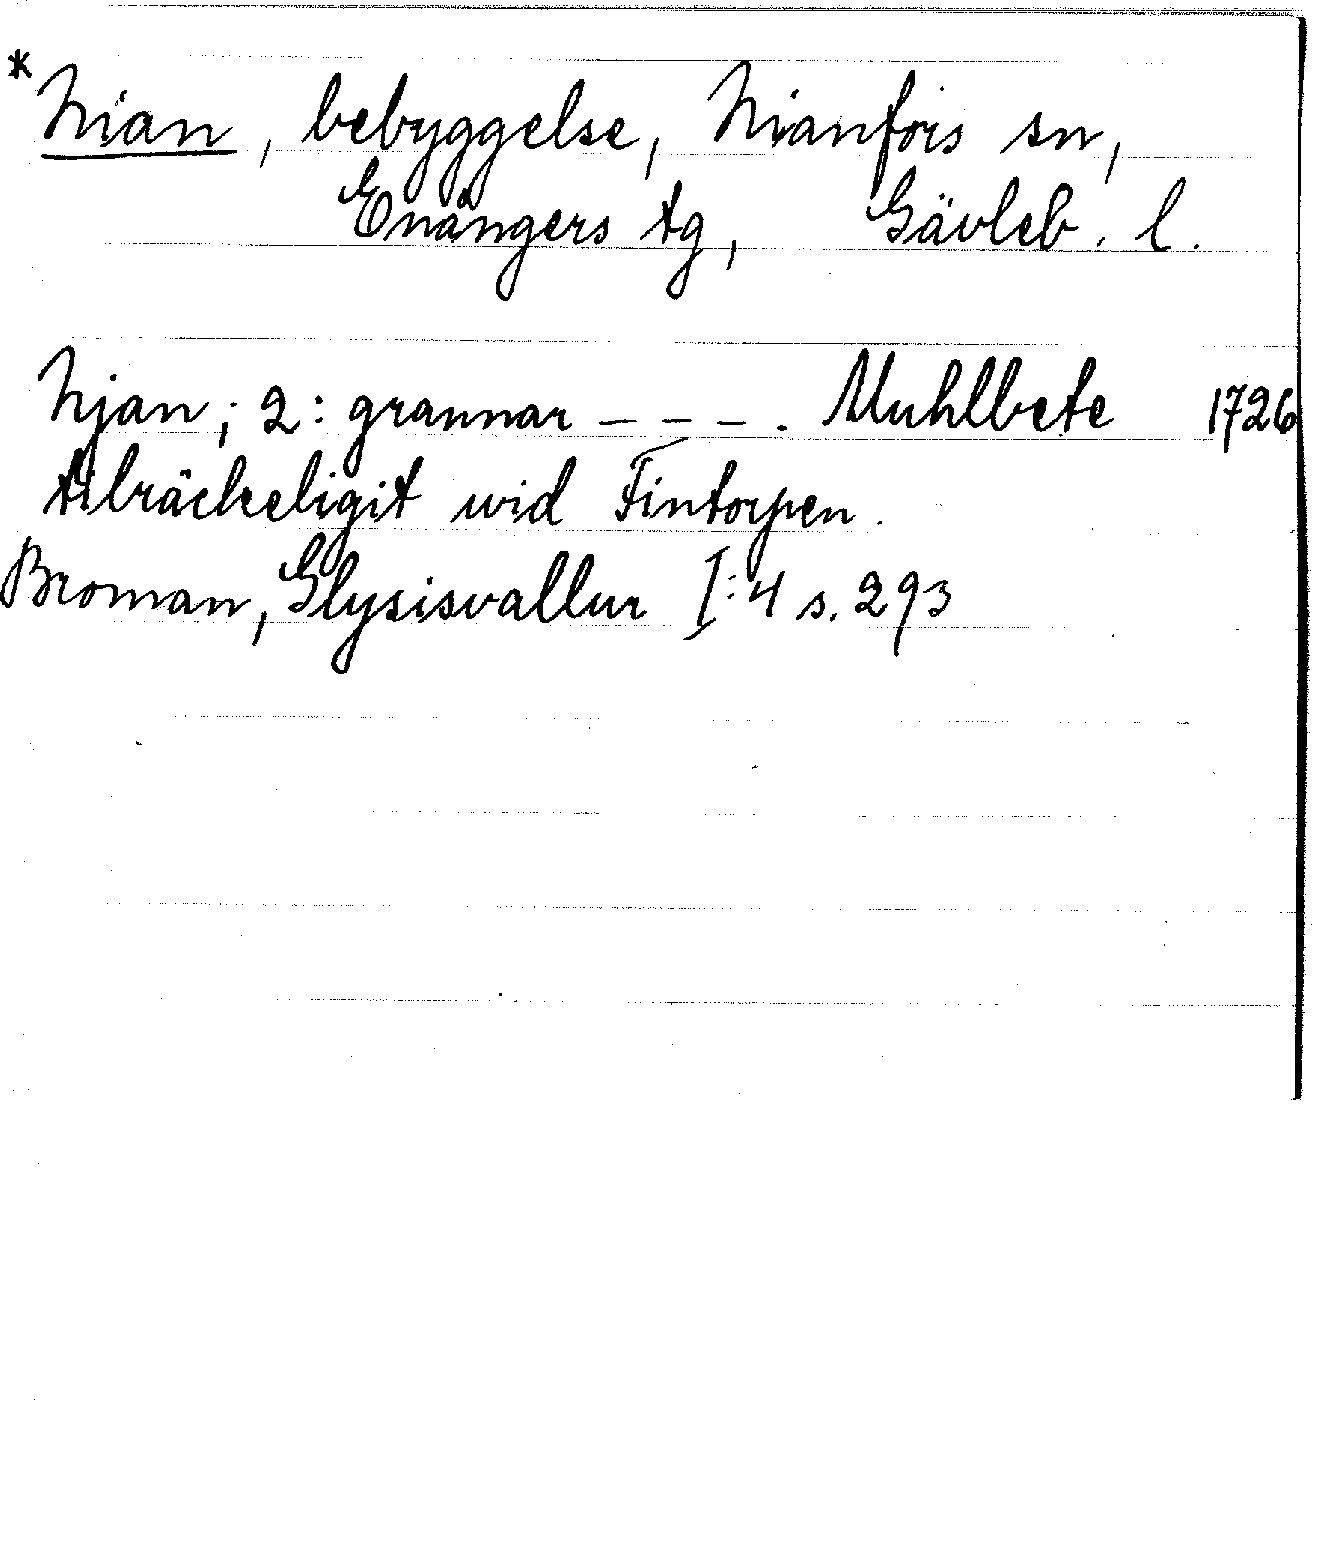 * Nian, bebyggelse, Nianfors sn,
Enångers tg, Gävleb. l.
Njan; 2: grannar _ _ _ . Muhlbete 1726
tilräckeligit wid Fintorpen.
Broman, Glysisvallur I:4 s. 293